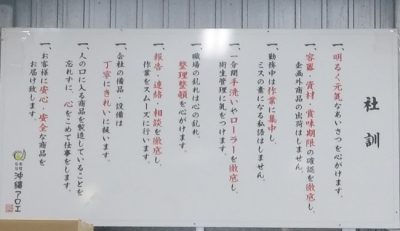 社訓
一、明るく元気なあいさつを心がけます。
一、容器・資材・賞味期限の確認を徹底し、
企画外商品の出荷はしません。
一、勤務中は作業に集中し、
ミスの素になる私語はしません。
一、一分間手洗いやローラーを徹底し、
衛生管理に気をつけます。
一、職場の乱れは心の乱れ、
整理整頓を心がけます。
一、報告・連絡・相談を徹底し、
作業をスムーズに行います。
一、会社の備品・設備は
丁寧にきれいに扱います。
一、人の口に入る商品を製造していることを
忘れずに、心をこめて仕事をします。
一、お客様に安心・安全な商品を
お届け致します。
沖縄アロエ